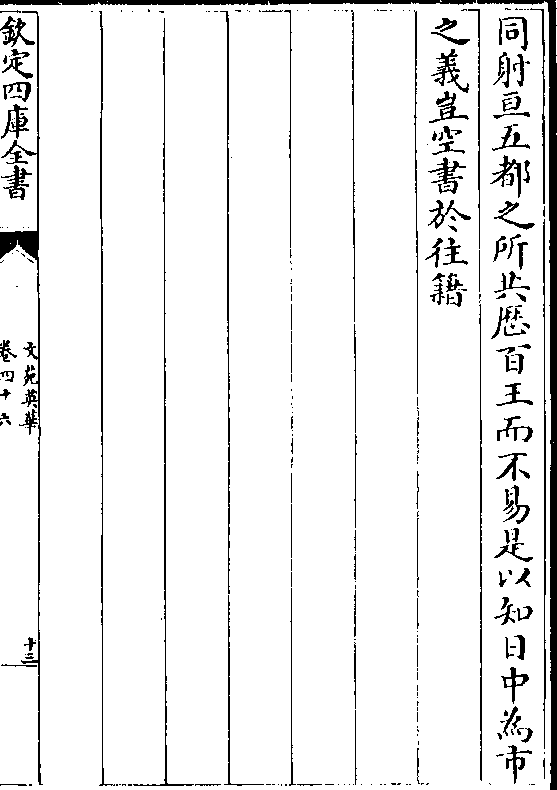 同射亘五都之所共厯百王而不易是以知日中為市
之義豈空書於往籍
欽定四庫全書
文苑英華
卷四十六
十三